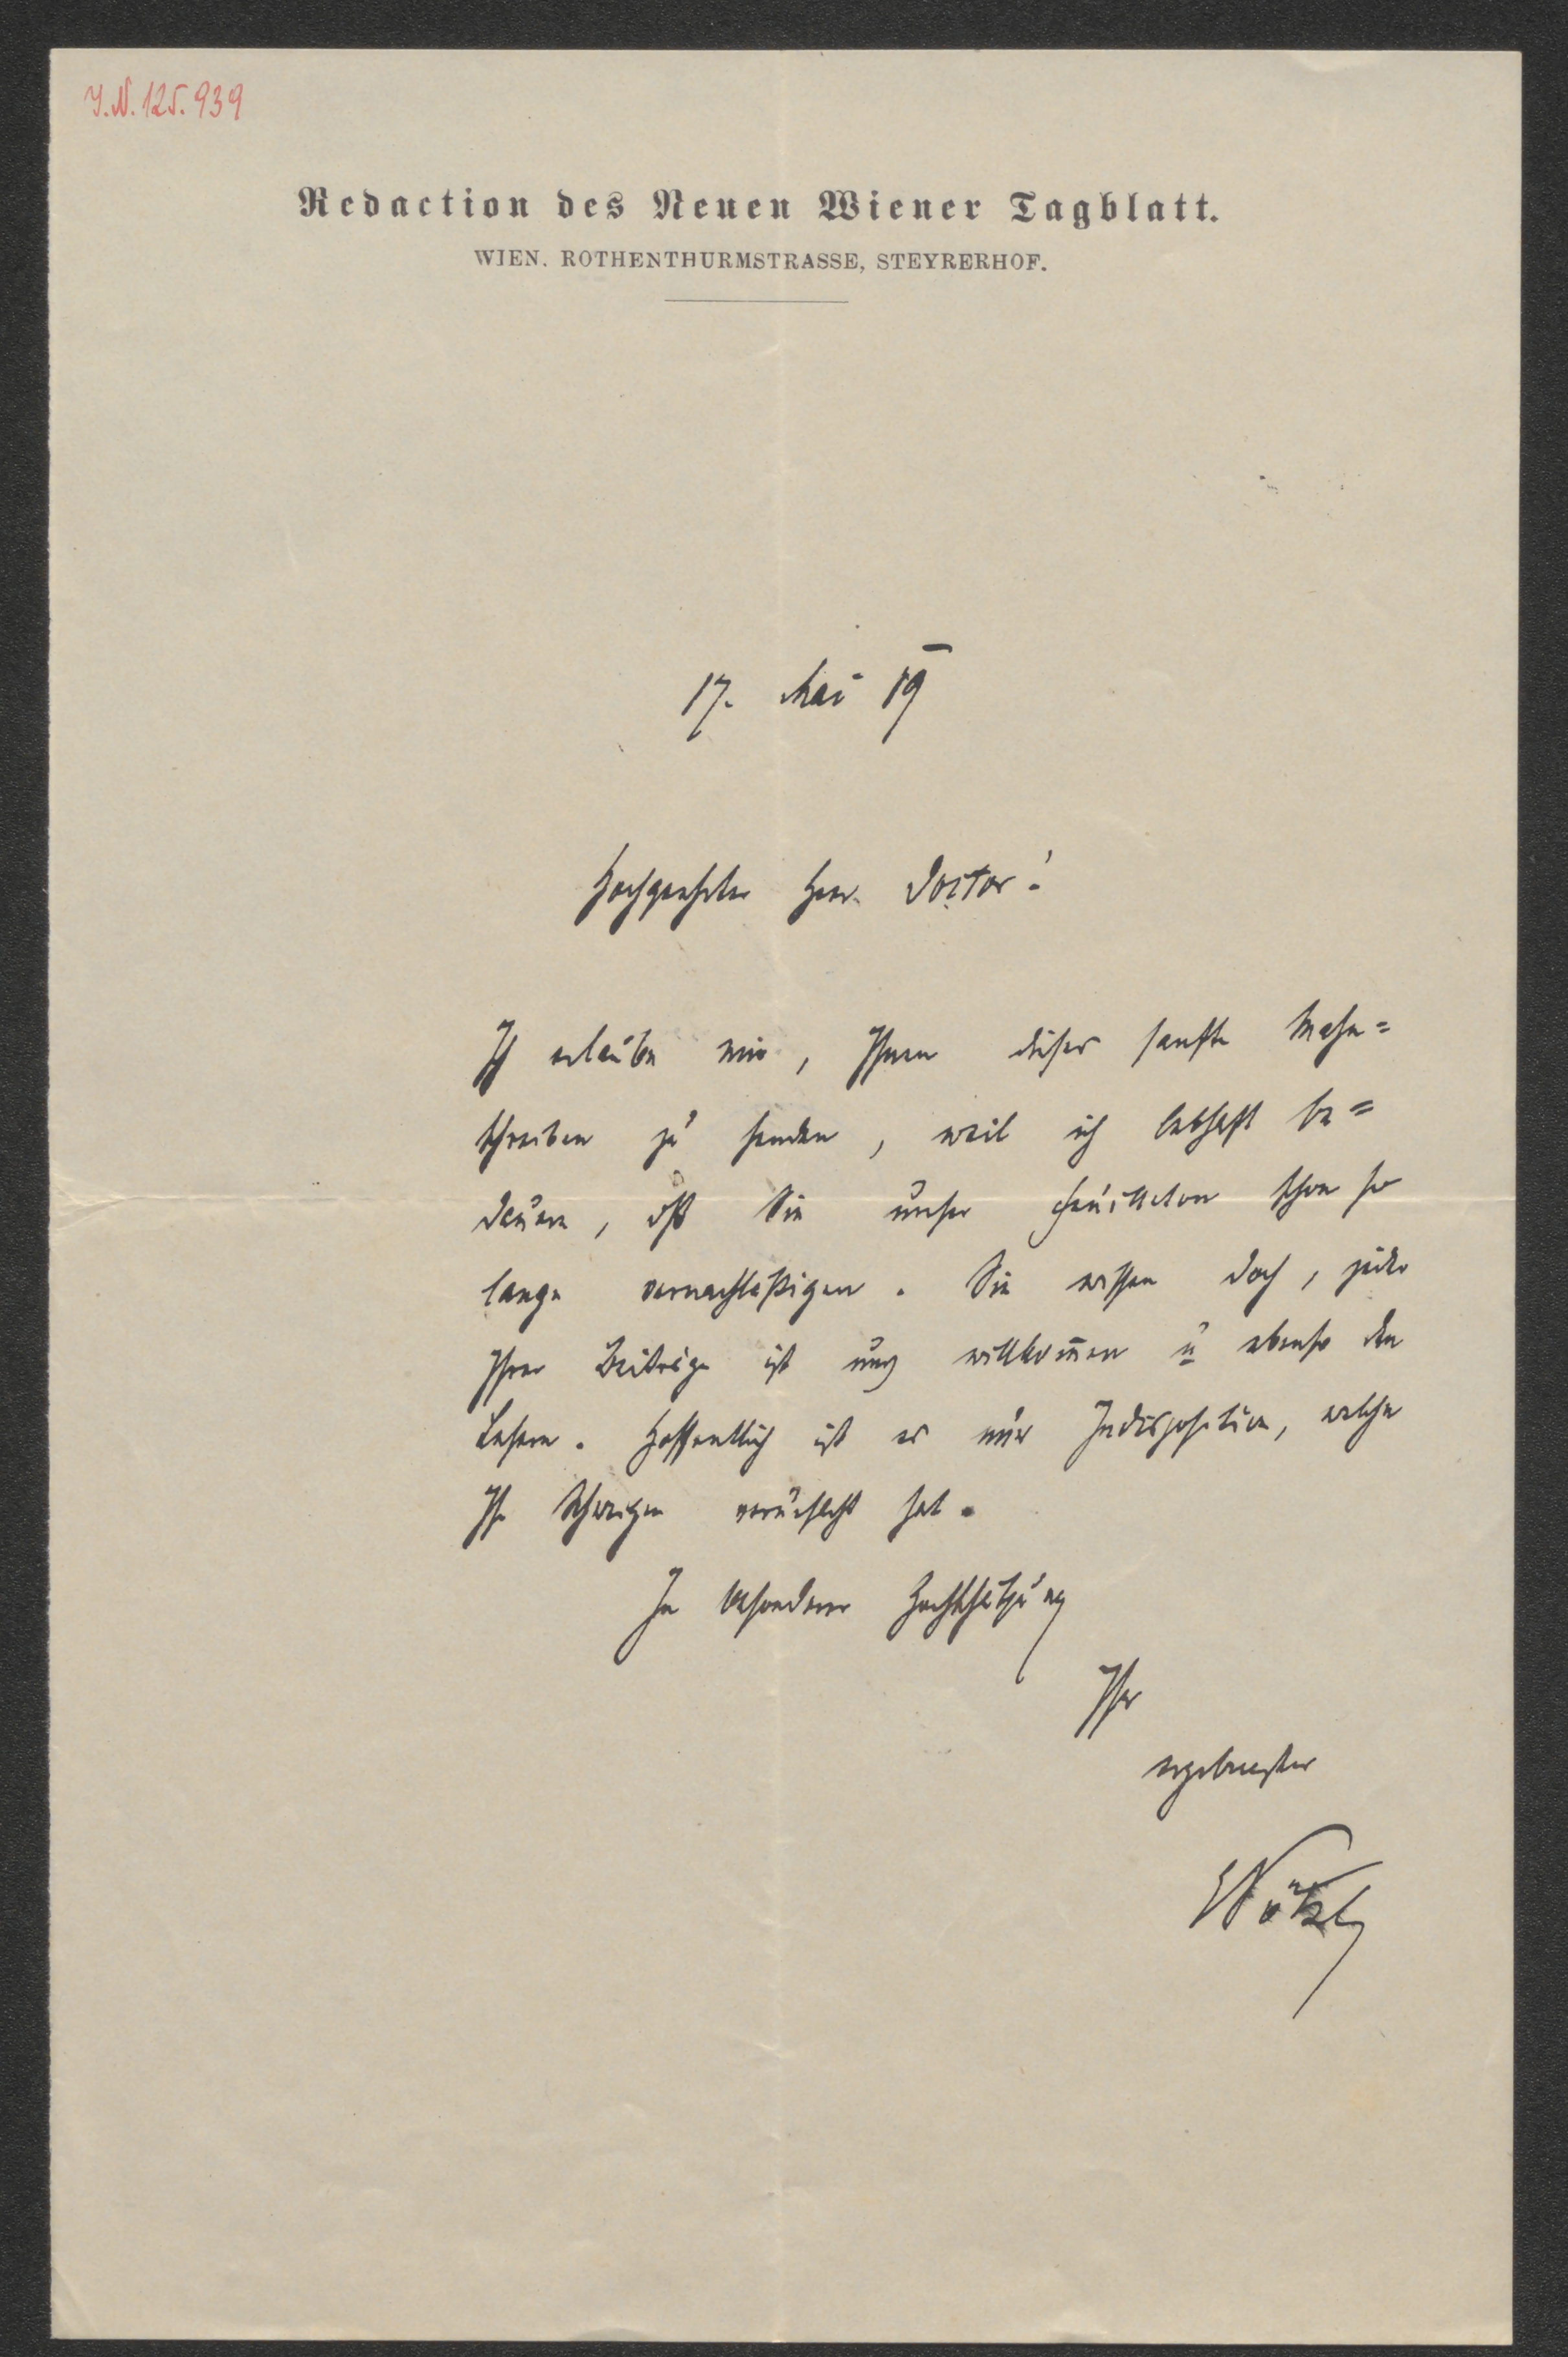 J.N. 125.939
Redaction des Neuen Wiener Tagblatt.
WIEN. ROTHENTHURMSTRASSE, STEYRERHOF.
17. Mai 89
Hochgeehrter Herr Doctor!
Ich erlaube mir, Ihnen dieses sanfte Mahn=
schreiben zu senden, weil ich lebhaft be=
dauere, daß Sie unser Feuilleton schon so
lange vernachläßigen. Sie wissen doch, jeder
Ihrer Beiträge ist uns willkom̅en u ebenso den
Lesern. Hoffentlich ist es nur Indisposition, welche
Ihr Schweigen verursacht hat.
In besonderer Hochschätzung
Ihr
ergebenster
Pötzl